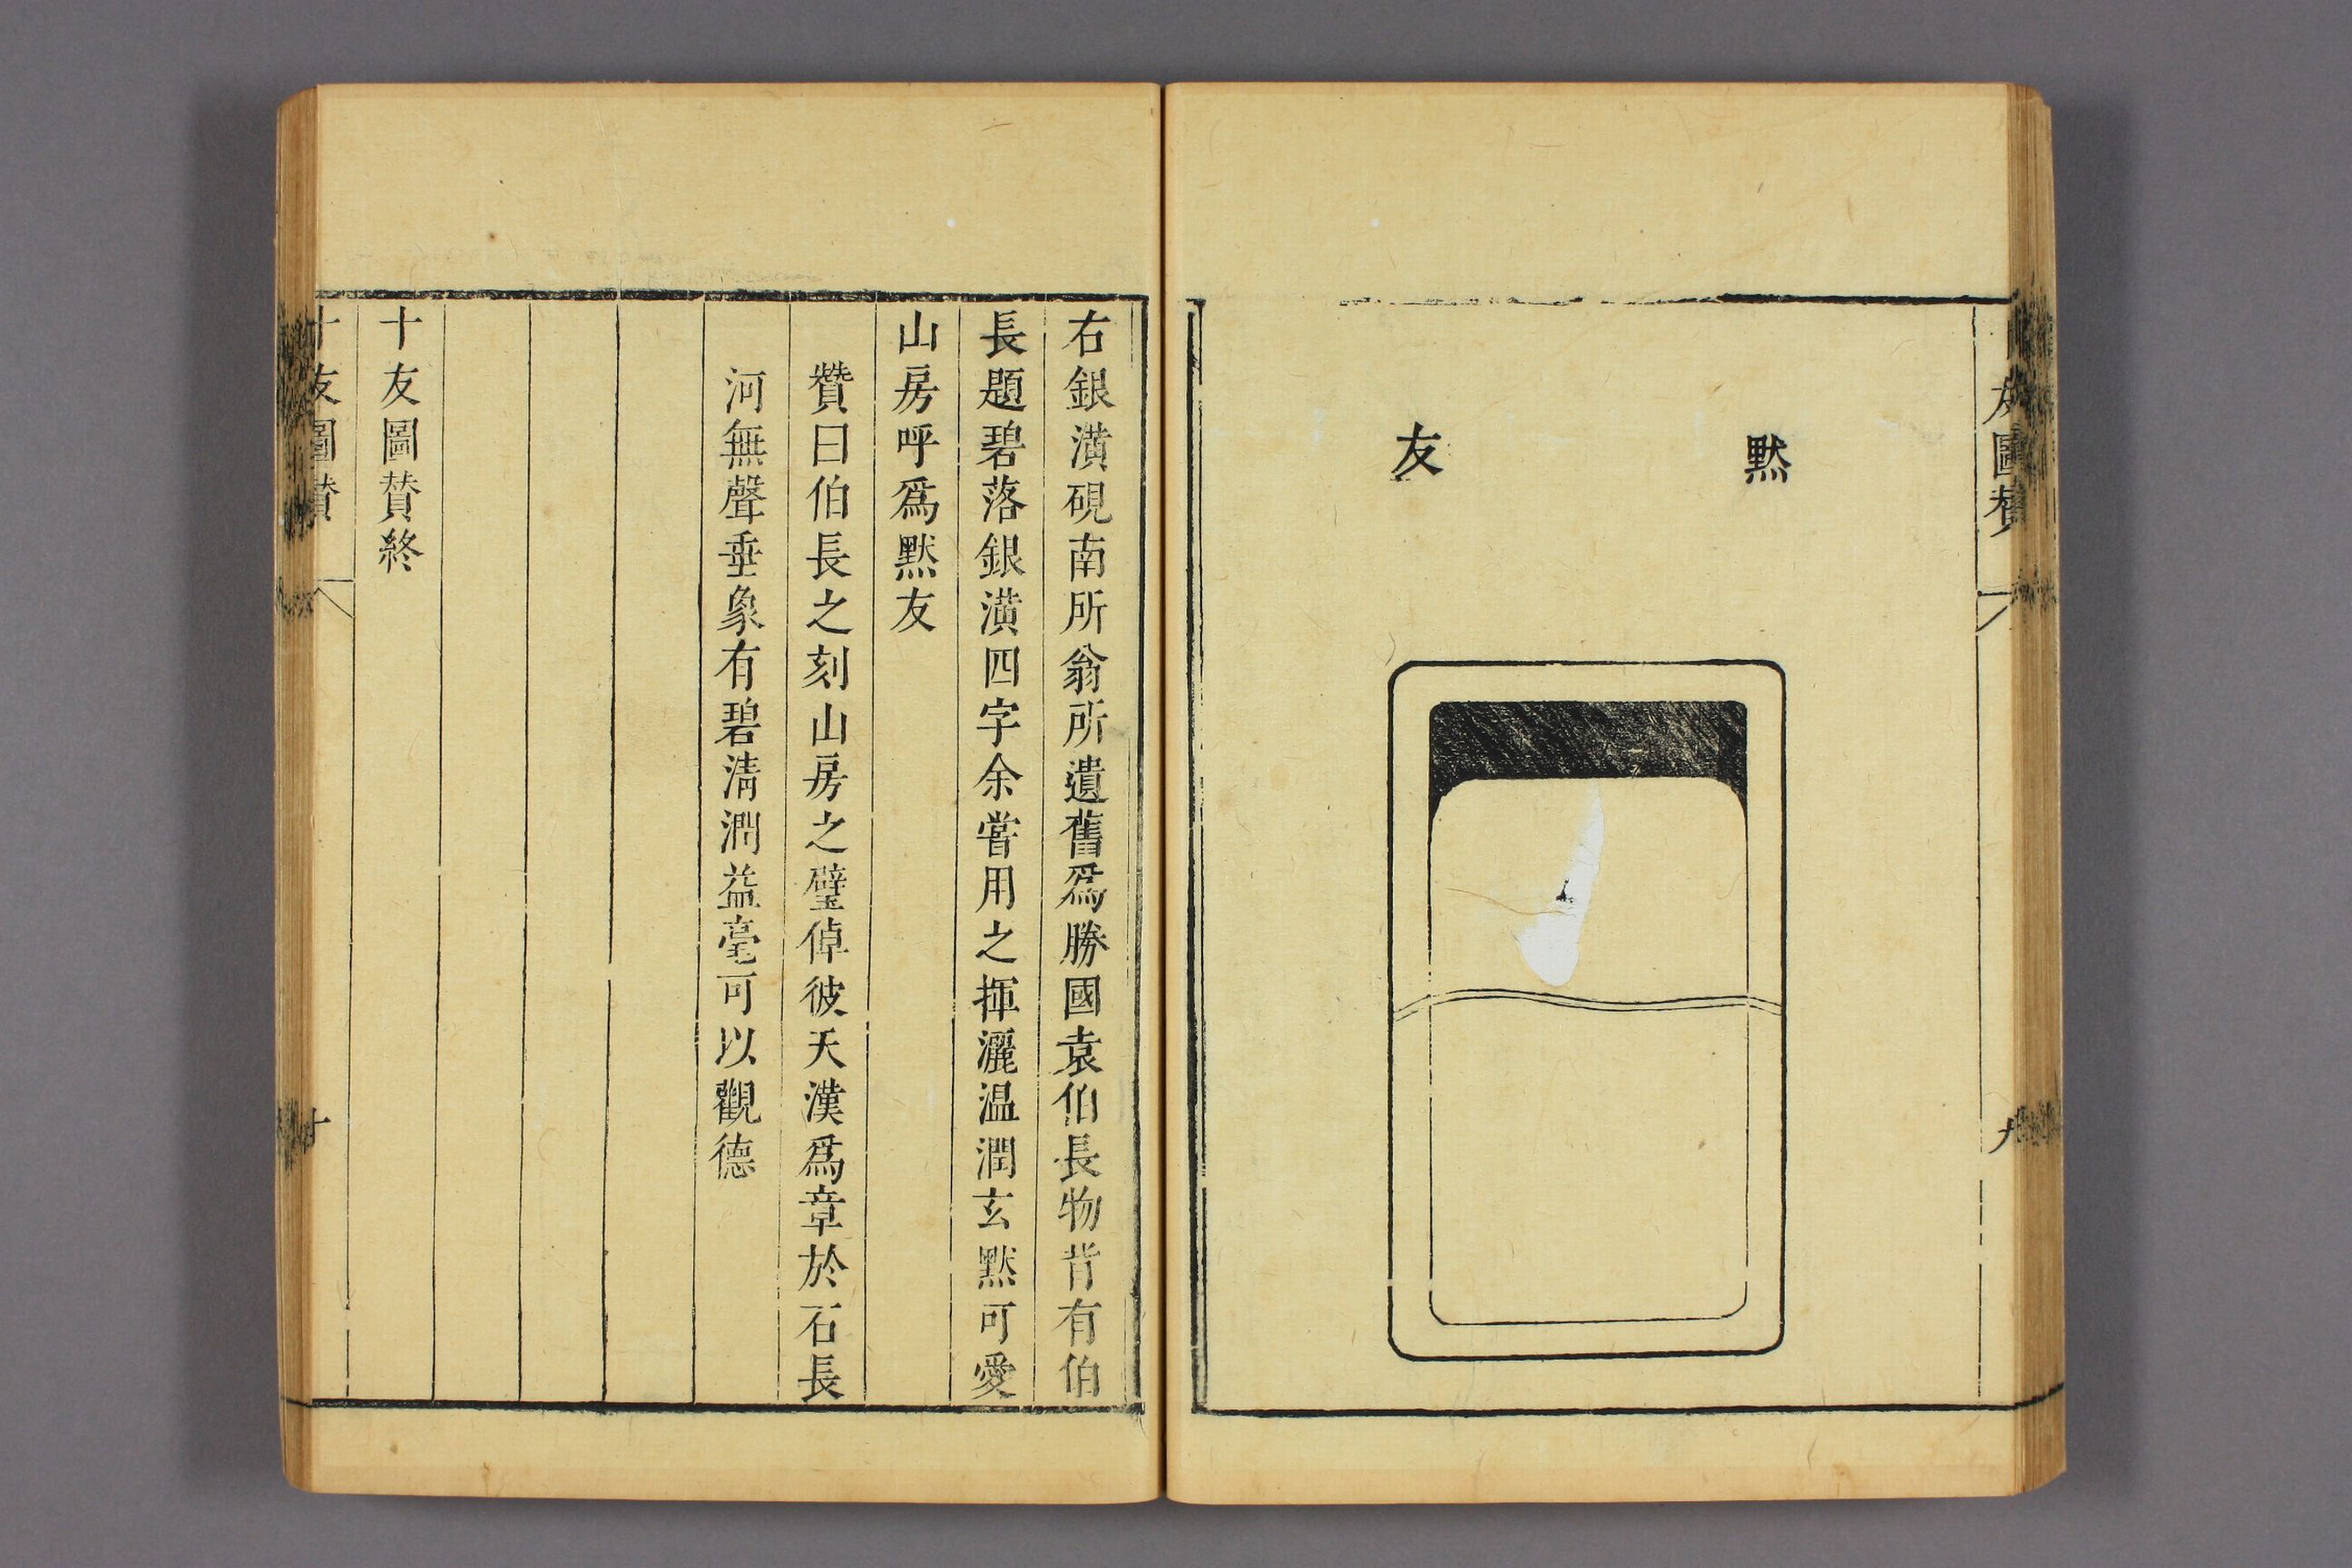 友圖賛
九
默友
右銀潢硯南所翁所遺舊爲勝國袁伯長物背有伯
長題碧落銀潢四字余嘗用之揮灑温潤玄默可愛
山房呼爲默友
贊曰伯長之刻山房之璧倬彼天漢爲章於石長
河無聲垂象有碧淸潤益毫可以觀德
十友圖賛終
十友圖賛
十